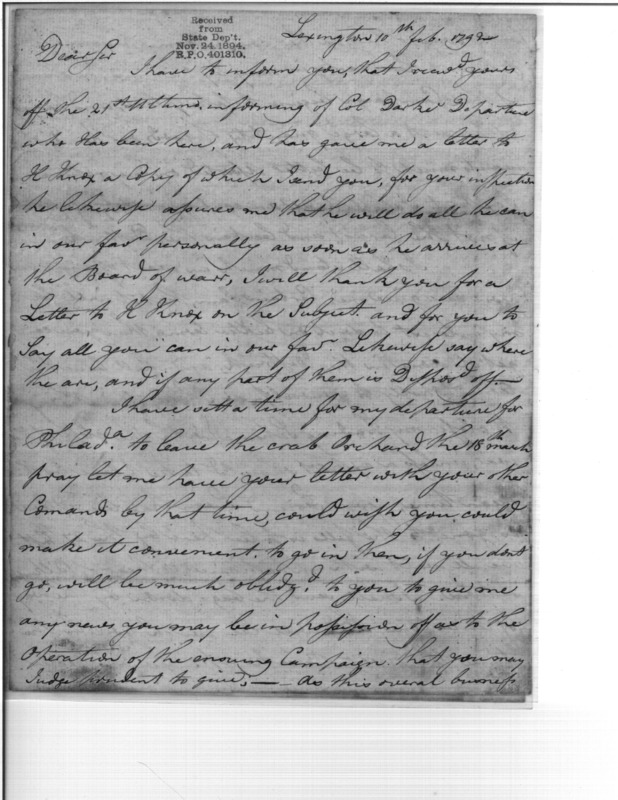 Received
from
State Dep't.
Nov. 24. 1894.
R.P.O. 401310.
Lexington 10th feb. 1792
Dear Sir
I have to inform you, that I recev'd yours
off the 21st Ultimo. informing of Col. Darke Departure
who Has been here, and has gave me a letter to
H Knox a Copy of which I send you, for your inspection
he likewise assures me that he will do all he can
in our favr. personally as soon as he arrives at
the Board of warr, I will thank you for a
Letter to H Knox on the Subject. and for you to
Say all you can in our favr. Likewise say where
the are, and if any part of them is off.—
I have sett a time for my departure for
Philada. to leave the crab Orchard the 18th march
pray let me have your letter with your other
Comands by that time, could wish you could
make it convenient. to go in then, if you dont
go, will be much oblidg'd to you to give me
any news you may be in possission off as to the
Operation of the ensuing Campaign. that you may
Judge prudent to give.— as this overal business